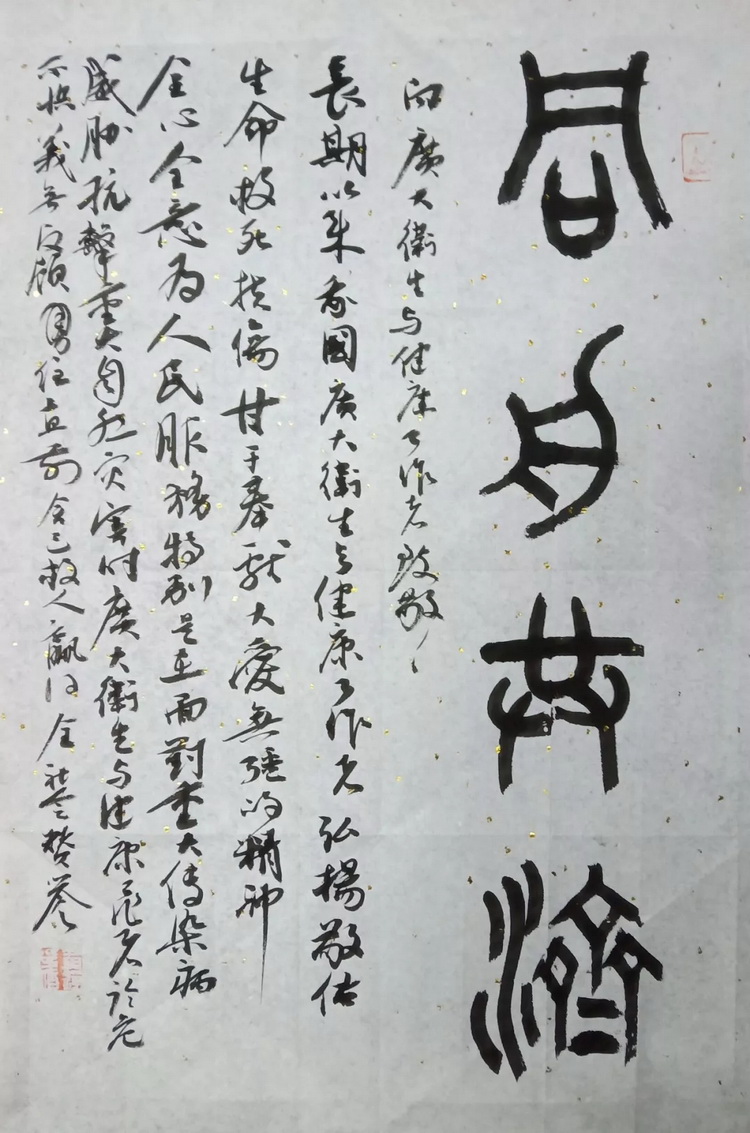 同舟共濟
向廣大衛生与健康工作者致敬
長期以來我國廣大衛生与健康工作者弘揚敬佑
生命救死扶傷甘于奉献大愛無疆的精神
全心全意為人民服務特别是在面對重大傳染病
威胁抗擊重大自然灾害时廣大衛生与健康工作者於危
不惧義无反顧勇往直前舍己救人赢得全社会赞誉